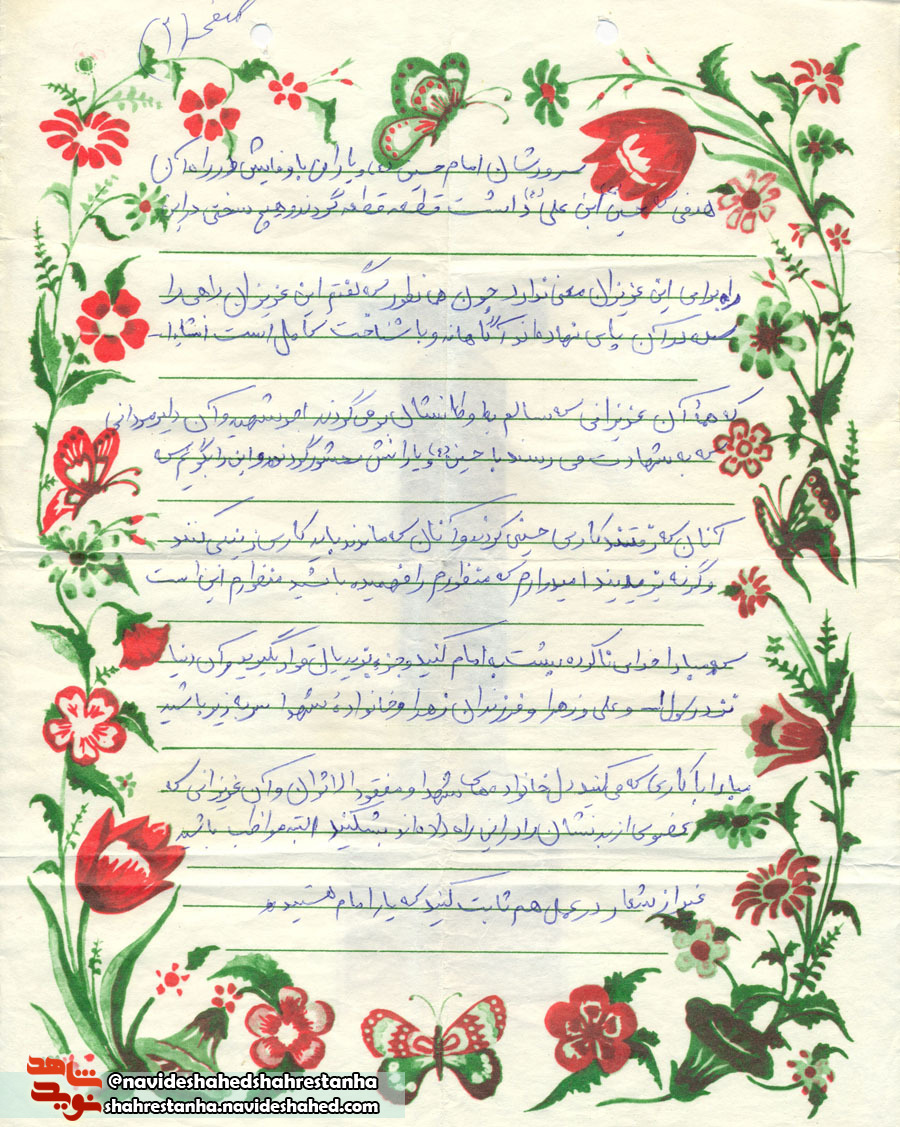 صفحه (۲)
سرورشان امام حسین (ع) و یاران باوفایش در راه آن
هدفی که حسین ابن علی (ع) داشت قطعه قطعه گردند و هیچ سختی در این
راه برای این عزیزان معنی ندارد چون همانطور که گفتم این عزیزان راهی را
که در آن پای نهاده‌اند آگاهانه و با شناخت کامل است انشاءا...
که همه آن عزیزانی که سالم به وطنشان بر می‌گردند اجر شهید و آن دلیرمردانی
که به شهادت می رسند با حسین (ع) و یارانش محشور گردند و این را بگویم که
آنان که رفتند کاری حسینی کردند و آنان که ماندند باید کاری زینبی کنند
وگرنه یزیدیند امیدوارم که منظورم را فهمیده باشید منظورم این است
که مبادا خدای ناکرده پشت به امام کنید و جزء یزیدیان قرار بگیرید و آن دنیا
نزد رسول الله و علی و زهرا و فرزندان زهرا و خانواده شهدا سر به زیر باشید
مبادا با کاری که می‌کنید دل خانواده‌های شهدا و مفقود الاثران و آن عزیزانی که
عضوی از بدنشان را در این راه داده‌اند بشکنید البته مواظب باشید
غیر از شعار در عمل هم ثابت کنید که یار امام هستید
شاهد
نوید
@navideshahedshahrestanha
shahrestanha.navideshahed.com